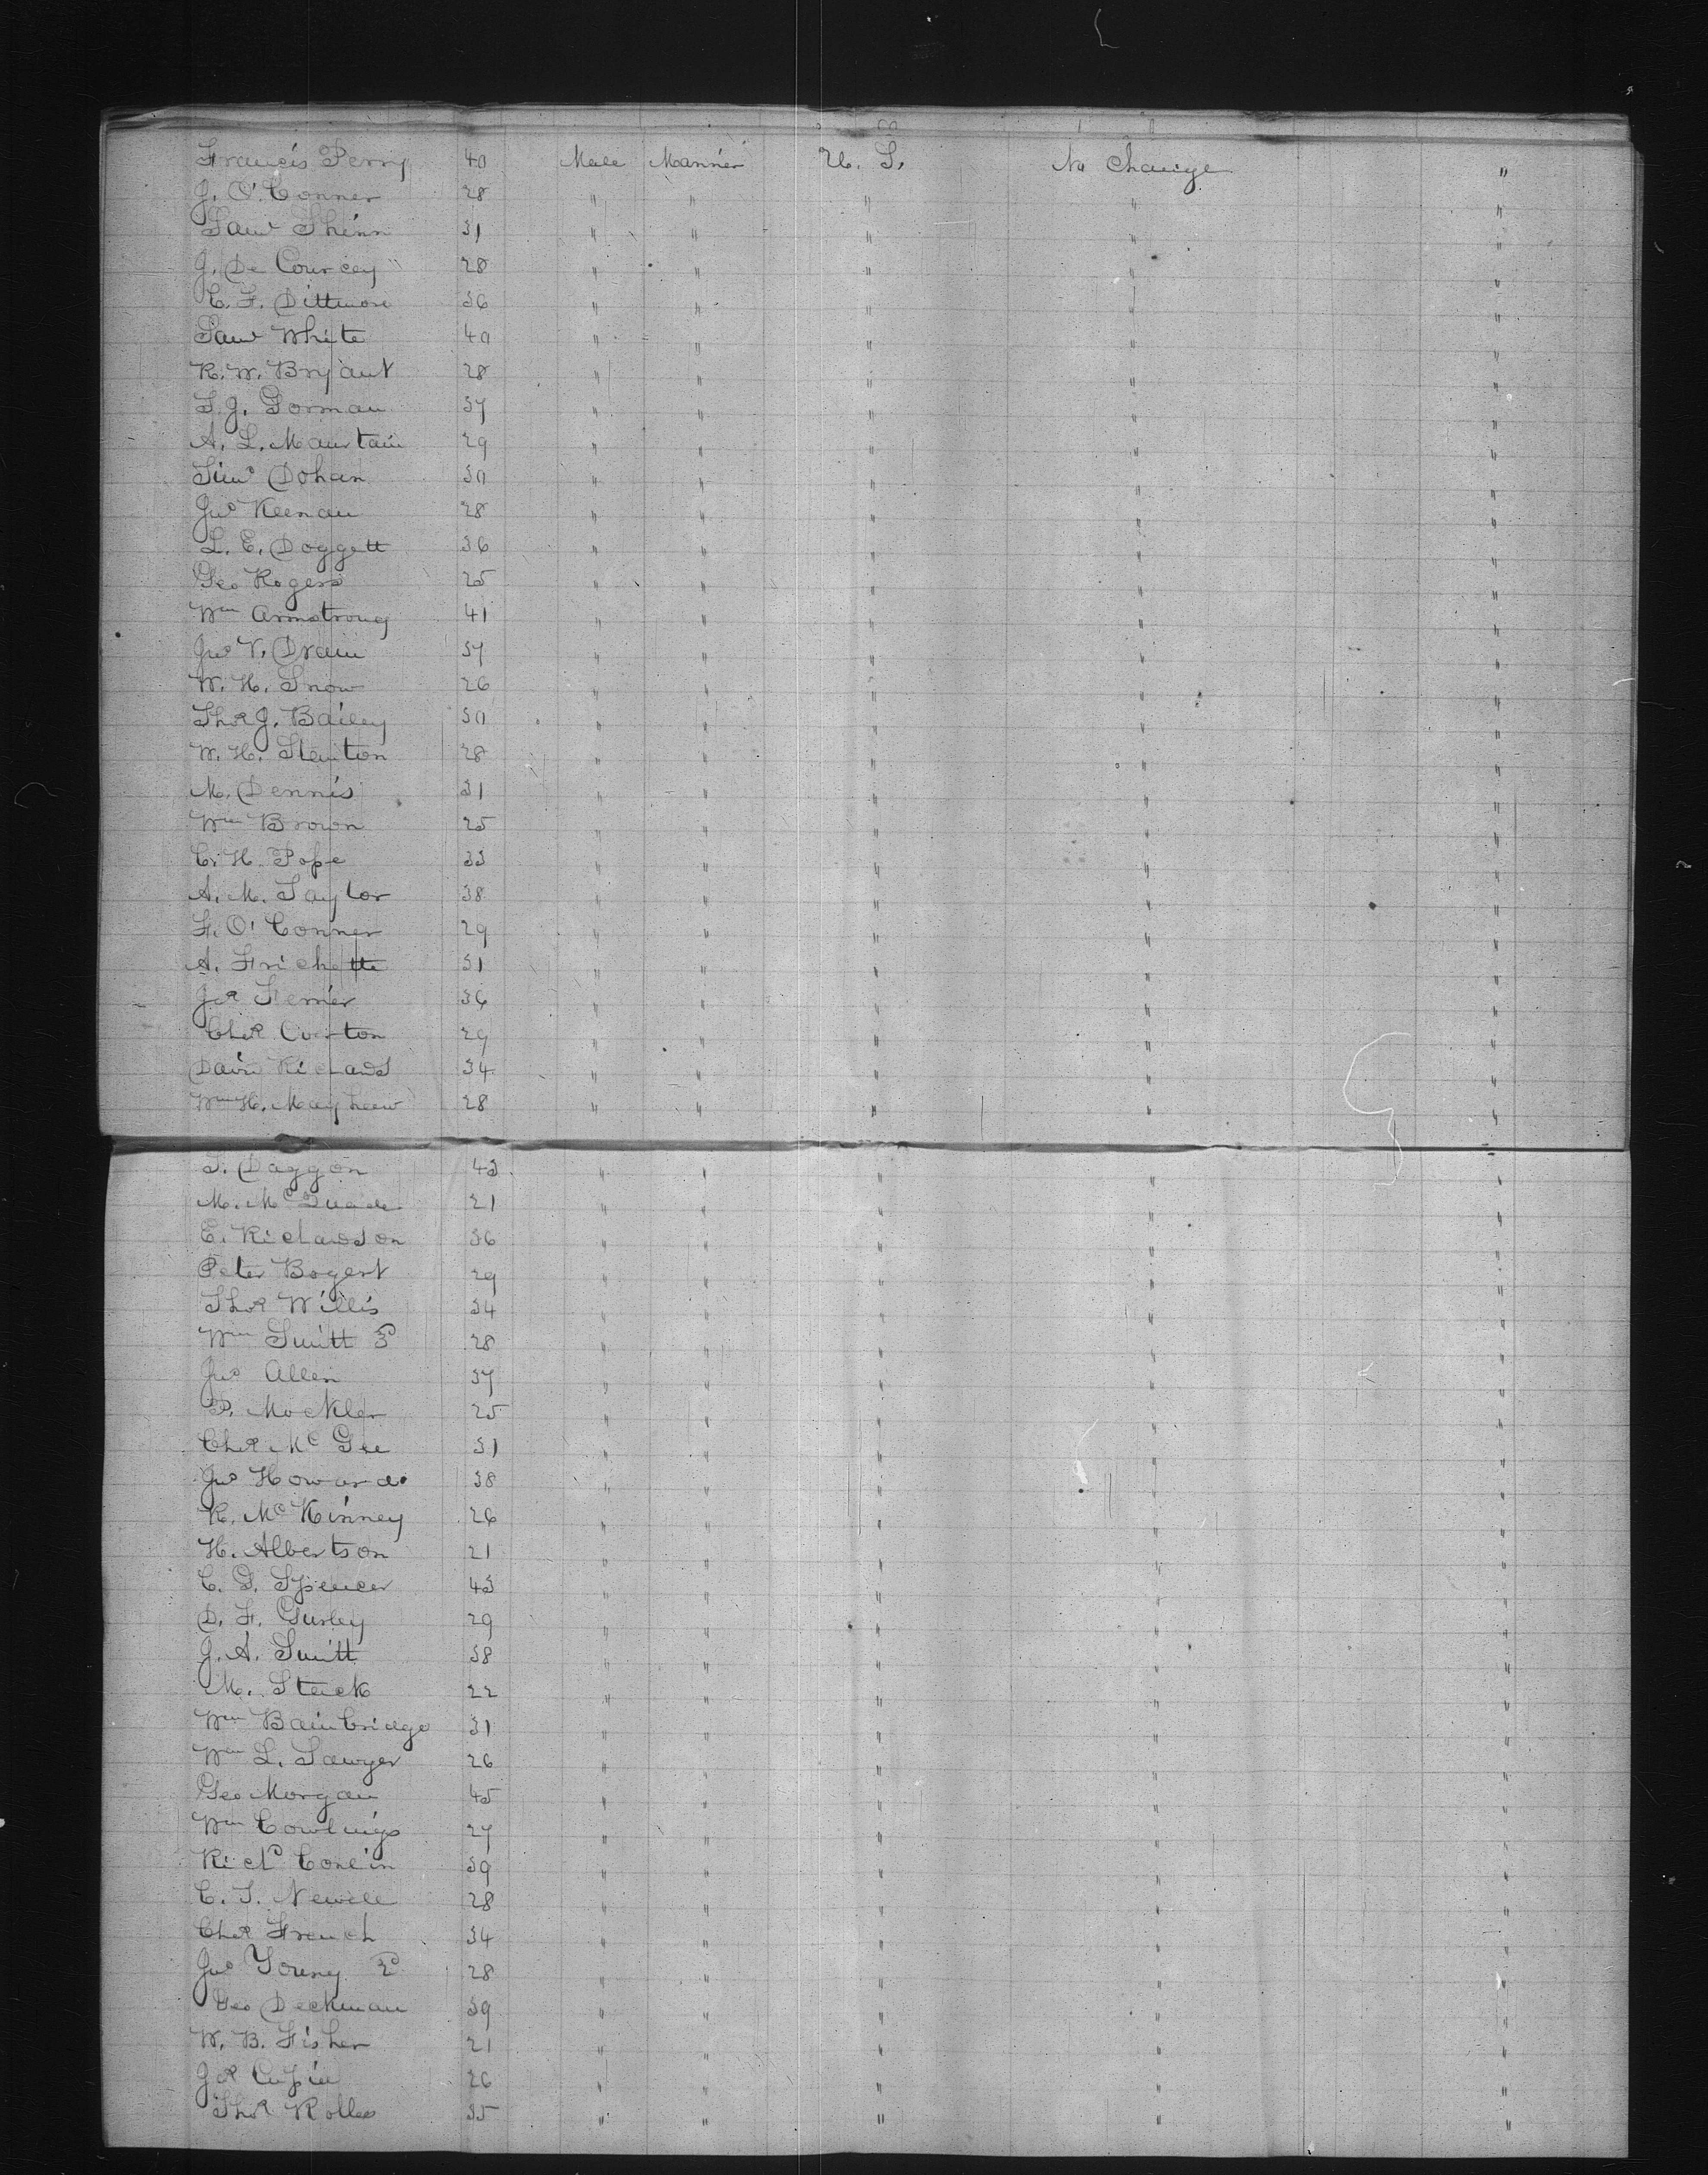 Francis Perry 40 Male Mariner U. S. No Change "
J. O'Conner 28 " " " " "
Saml Shinn 31 " " " " "
J. De Courcey 28 " " " " "
C. F. Dittmore 36 " " " " "
Saml White 40 " " " " "
R. W. Bryant 28 " " " " "
T. J. Gorman 37 " " " " "
A. L. Mountain 29 " " " " "
Simo Dohan 30 " " " " "
Jno Keenan 28 " " " " "
L. E. Doggett 36 " " " " "
Geo Rogers 25 " " " " "
Wm Armstrong 41 " " " " "
Jno V. Drain 37 " " " " "
W. H. Snow 26 " " " " "
Thos J. Bailey 30 " " " " "
W. H. Stenton 28 " " " " "
M. Dennis 31 " " " " "
Wm Brown 25 " " " " "
C. H. Pope 33 " " " " "
A. M. Taylor 38 " " " " "
F. O'Conner 29 " " " " "
A. Frichette 31 " " " " "
Jas 36 " " " " "
Chas Overton 29 " " " " "
David Richards 34 " " " " "
Wm H. Mayhew 28 " " " " "
T. Daggon 43 " " " " "
M. McQuade 21 " " " " "
E. Richardson 36 " " " " "
Peter Bogert 29 " " " " "
Thos Willis 34 " " " " "
Wm Smith 3d 28 " " " " "
Jno Allen 37 " " " " "
P. Mockler 25 " " " " "
Chas McGee 31 " " " " "
Jno Howard 38 " " " " "
R. McKinney 26 " " " " "
H. Albertson 21 " " " " "
C. D. Spencer 43 " " " " "
D. F. Gurley 29 " " " " "
J. A. Smith 38 " " " " "
M. Stack 22 " " " " "
Wm Bainbridge 31 " " " " "
Wm L. Sawyer 26 " " " " "
Geo Morgan 45 " " " " "
Wm Cowlings 27 " " " " "
Richd Conlin 39 " " " " "
C. T. Newell 28 " " " " "
Chas French 34 " " " " "
Jno Young 2d 28 " " " " "
Geo Deckman 39 " " " " "
W. B. Fisher 21 " " " " "
Jas 26 " " " " "
Thos Rolles 35 " " " " "